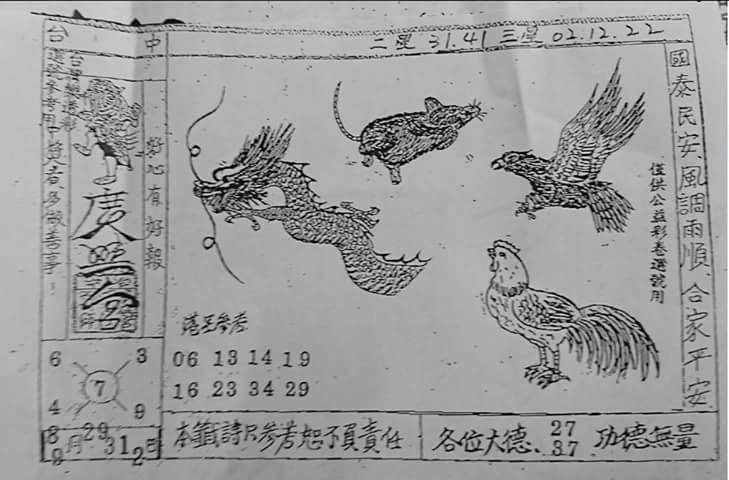 台中
二星 31.41 三星 02.12.22
國泰民安風調雨順合家平安
僅供公益彩卷選號用
好心有好報
港至參考
06 13 14 19
16 23 34 29
6 3
7
4 9
8 29
月 31 日
9 2
本籤詩只參考恕不負責任
各位大德、27 37 功德無量